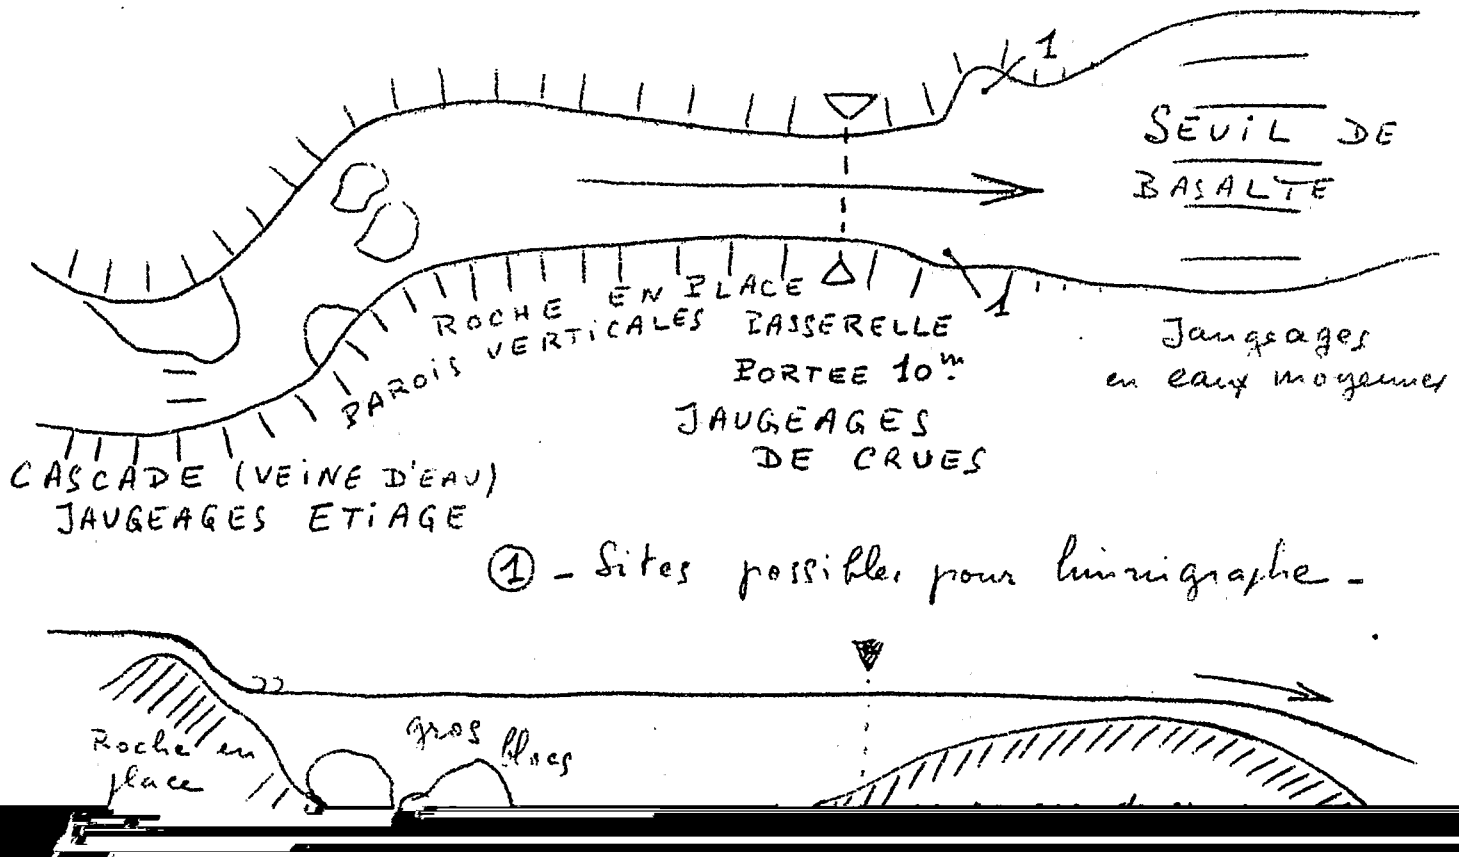 1
SEUIL DE
BASALTE
ROCHE EN PLACE
PAROIS VERTICALES
1
PASSERELLE
PORTEE 10m.
JAUGEAGES
DE CRUES
Jaugeages
en eaux moyennes
CASCADE (VEINE D'EAU)
JAUGEAGES ETIAGE
① - Sites possibles pour limnigraphe -
Roche en
place
gros
blocs